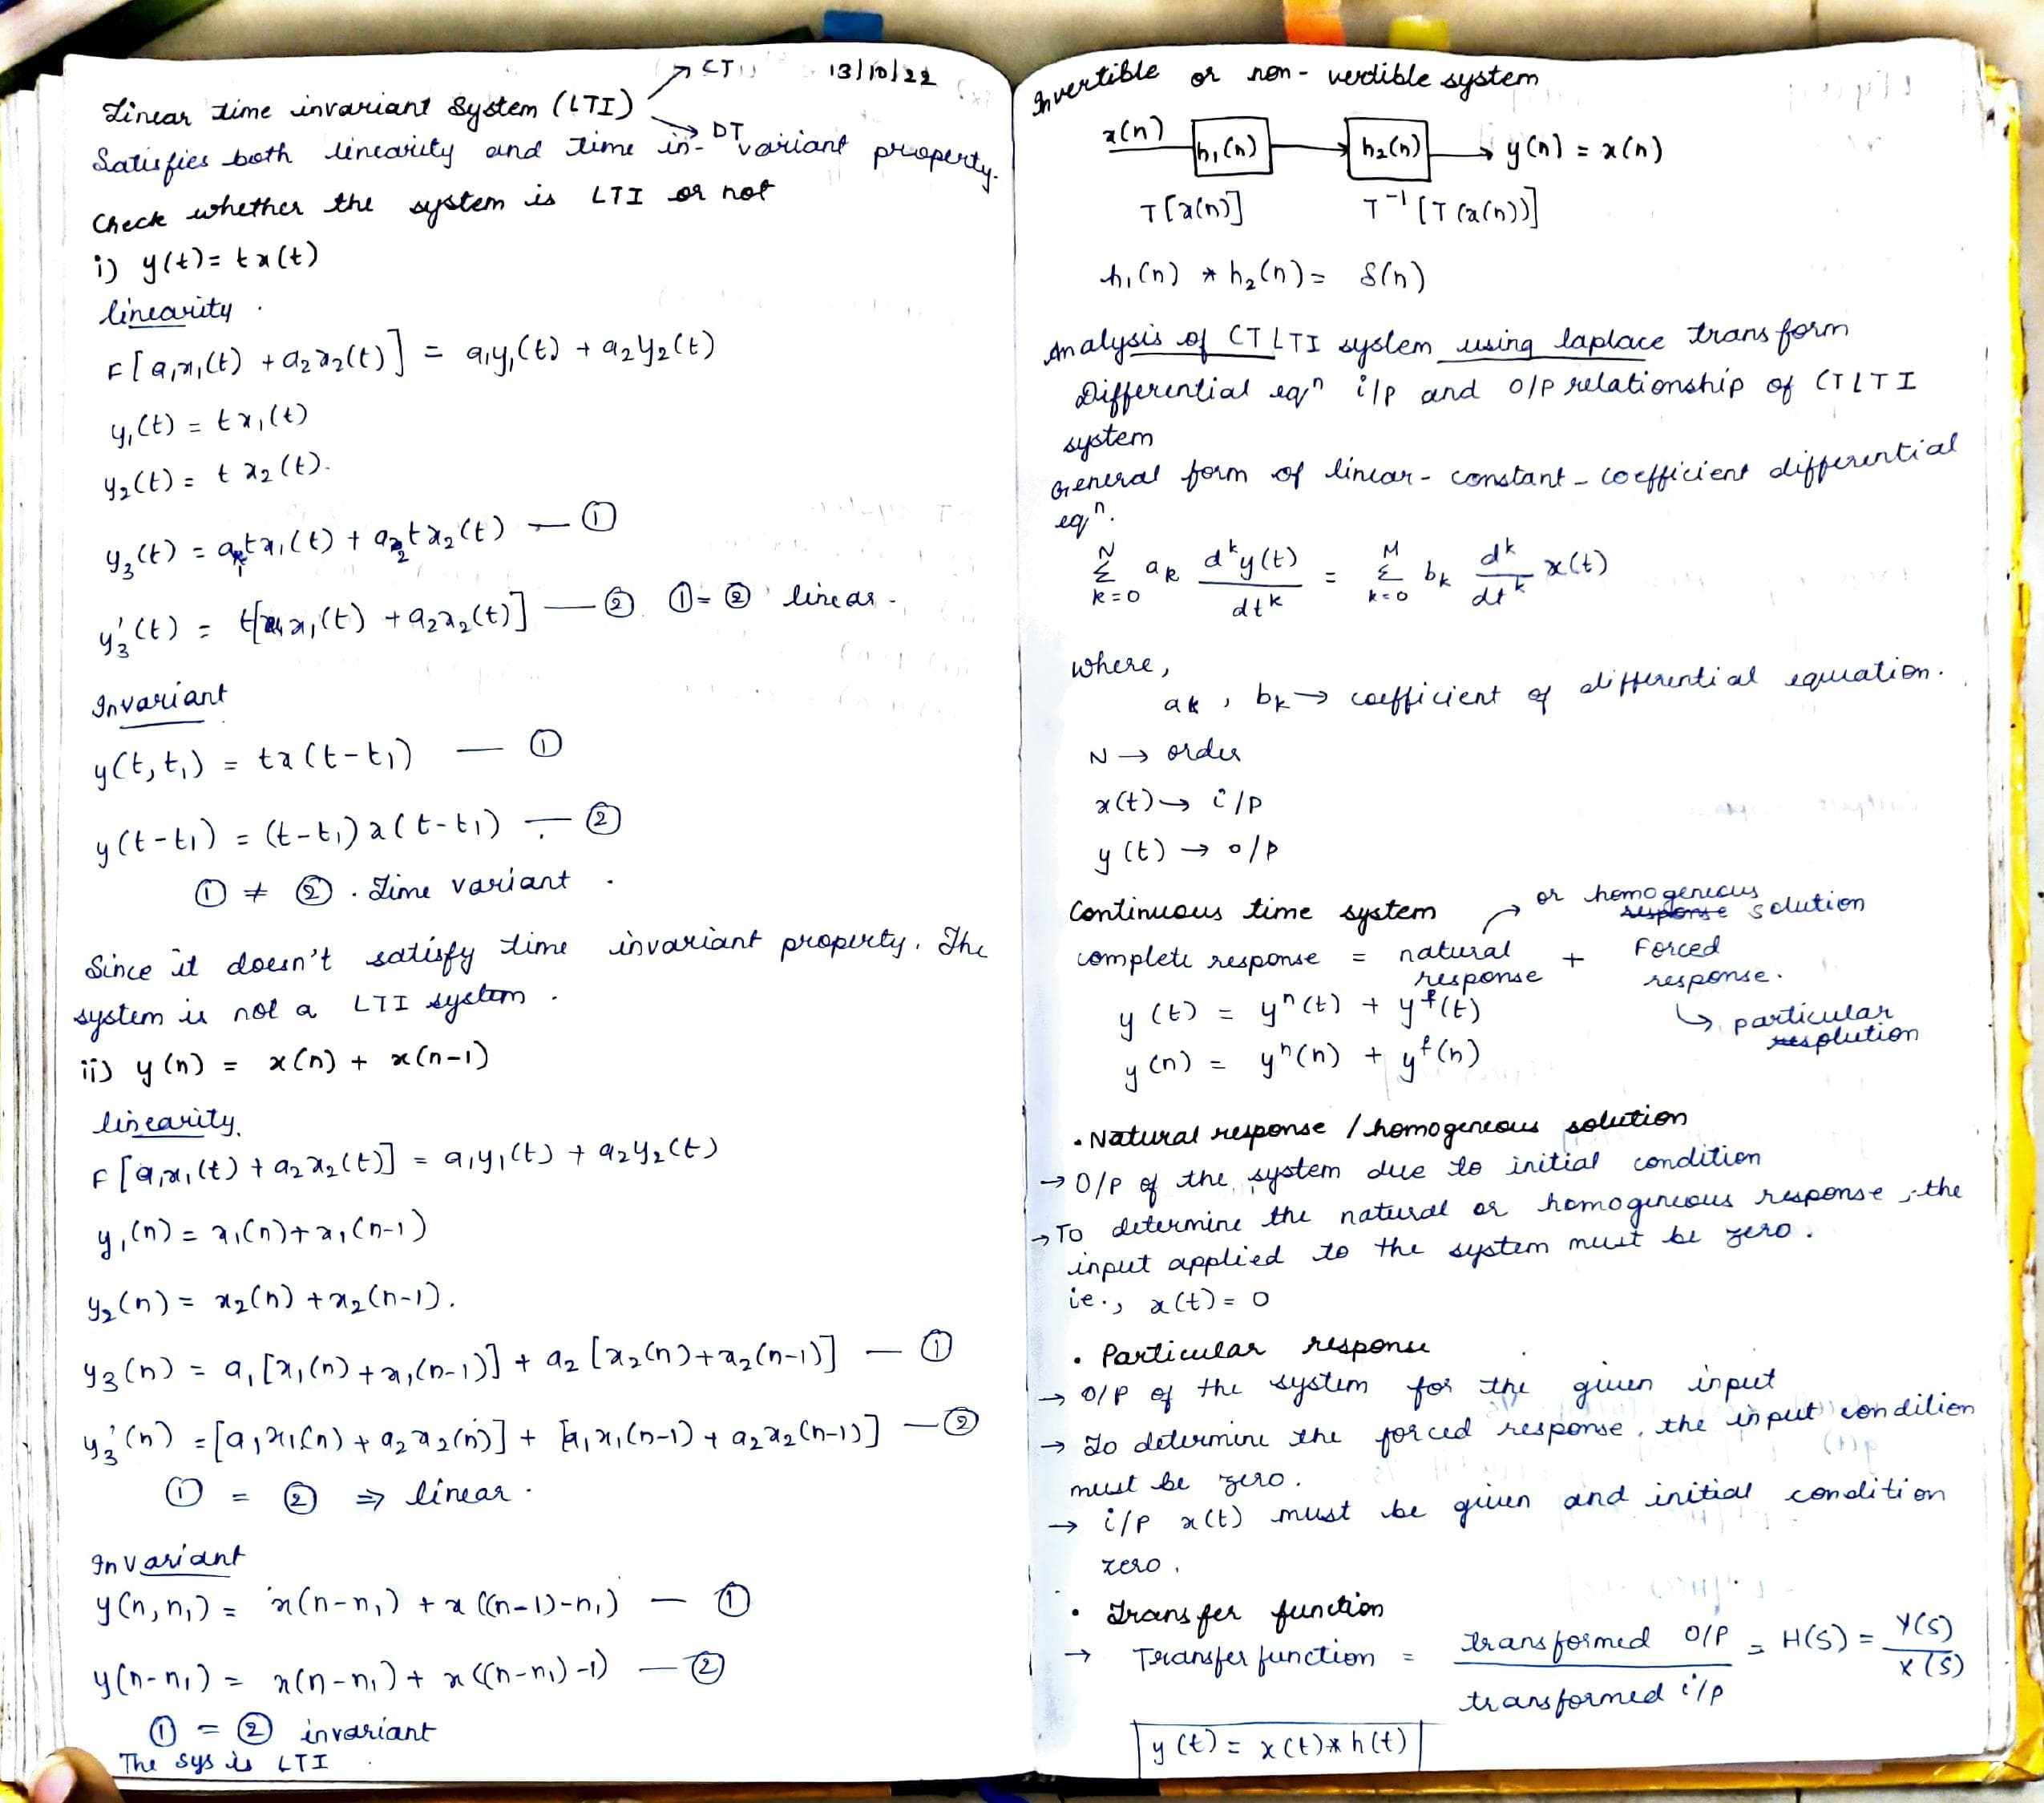 13/10/22
Linear time invariant system (LTI) → CT
→ DT
Satisfies both linearity and time in-variant property.
Check whether the system is LTI or not
i) y(t) = t x(t)
linearity
F[a₁x₁(t) + a₂x₂(t)] = a₁y₁(t) + a₂y₂(t)
y₁(t) = t x₁(t)
y₂(t) = t x₂(t).
y₃(t) = a₁t x₁(t) + a₂t x₂(t) — ①
y₃'(t) = t[a₁x₁(t) + a₂x₂(t)] — ② ① = ② linear.
Invariant
y(t,t₁) = t x(t-t₁) — ①
y(t-t₁) = (t-t₁) x(t-t₁) — ②
① ≠ ② . Time variant .
Since it doesn't satisfy time invariant property. The
system is not a LTI system .
ii) y(n) = x(n) + x(n-1)
linearity.
F[a₁x₁(t) + a₂x₂(t)] = a₁y₁(t) + a₂y₂(t)
y₁(n) = x₁(n) + x₁(n-1)
y₂(n) = x₂(n) + x₂(n-1).
y₃(n) = a₁[x₁(n) + x₁(n-1)] + a₂[x₂(n) + x₂(n-1)] — ①
y₃'(n) = [a₁x₁(n) + a₂x₂(n)] + [a₁x₁(n-1) + a₂x₂(n-1)] — ②
① = ② ⇒ linear .
Invariant
y(n,n₁) = x(n-n₁) + x((n-1)-n₁) — ①
y(n-n₁) = x(n-n₁) + x((n-n₁)-1) — ②
① = ② invariant
The sys is LTI
Invertible or non - vertible system
x(n) h₁(n) → h₂(n) → y(n) = x(n)
T[x(n)] T⁻¹[T(x(n))]
h₁(n) * h₂(n) = δ(n)
Analysis of CT LTI system using laplace transform
Differential eqⁿ i/p and o/p relationship of CTLTI
system
General form of linear - constant - coefficient differential
eqⁿ.
N Σ k=0 aₖ dᵏy(t)/dtᵏ = M Σ k=0 bₖ dᵏ/dtᵏ x(t)
where,
aₖ , bₖ → coefficient of differential equation.
N → order
x(t) → i/p
y(t) → o/p
Continuous time system → or homogeneous response solution
complete response = natural response + Forced response.
↳ particular resplution
y(t) = yⁿ(t) + yᶠ(t)
y(n) = yⁿ(n) + yᶠ(n)
• Natural response / homogeneous solution
→ O/P of the system due to initial condition
→ To determine the natural or homogeneous response, the
input applied to the system must be zero.
ie., x(t) = 0
• Particular response
→ O/P of the system for the given input
→ To determine the forced response, the input condition
must be zero.
→ i/p x(t) must be given and initial condition
zero.
• Transfer function
→ Transfer function = transformed O/P / transformed i/p = H(S) = Y(S)/X(S)
y(t) = x(t) * h(t)